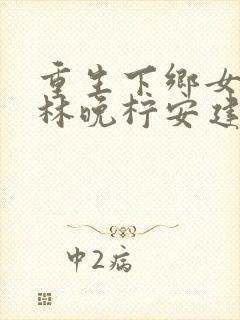 重生下鄉女
林晚柠安建
中2病